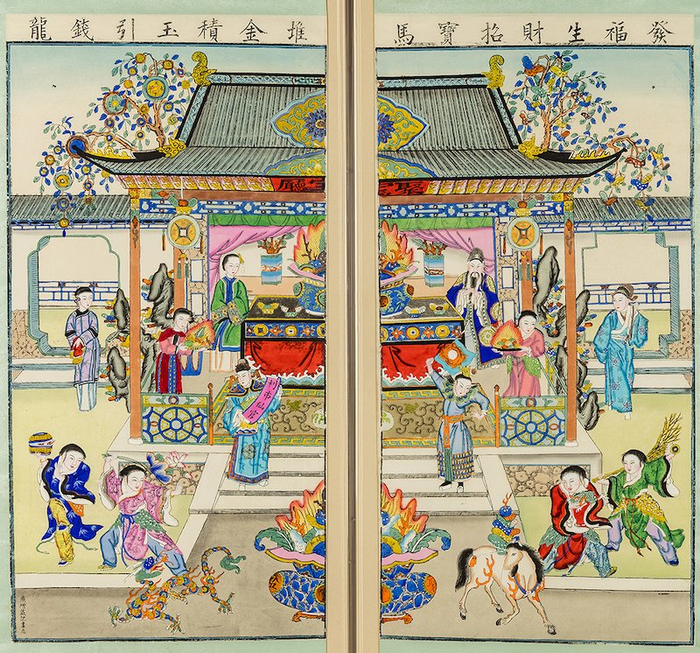 發福生財招寶馬
堆金積玉引錢龍
聚寶廳